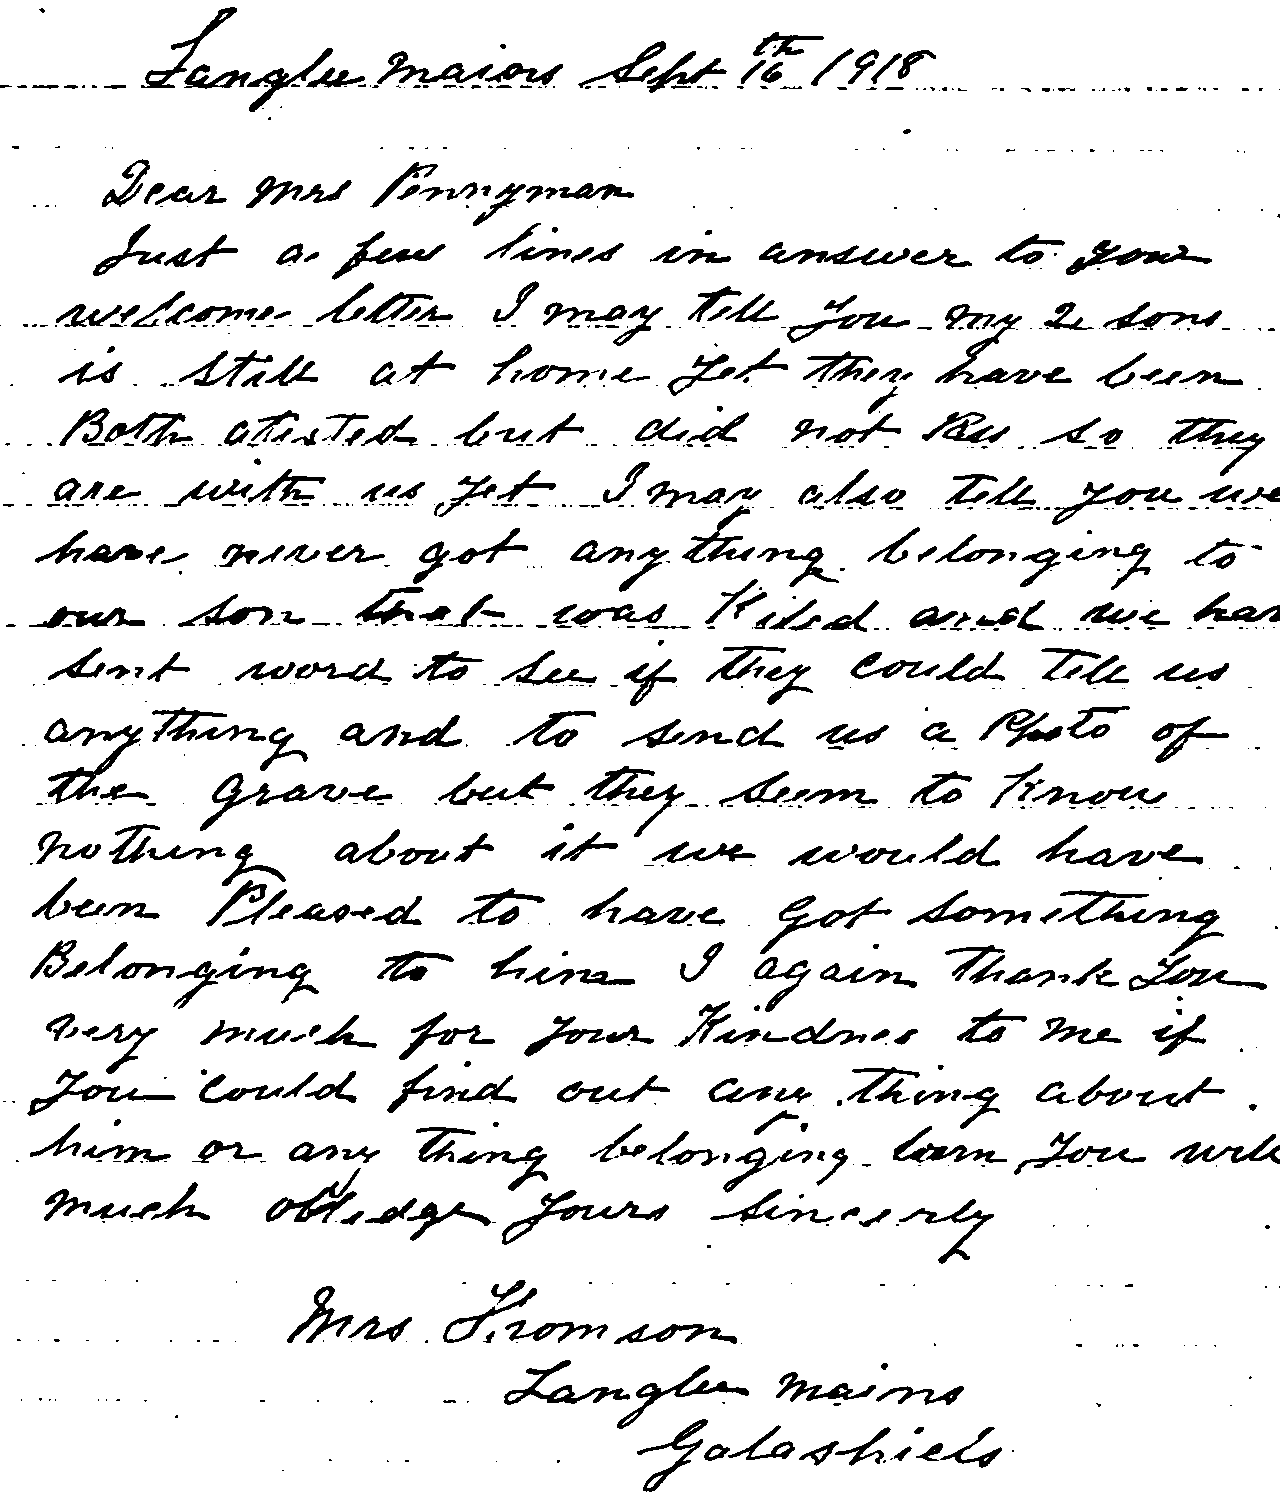 Langlee Mains Sept 16th 1918
Dear Mrs Pennyman
Just a few lines in answer to your
welcome letter I may tell you my 2 sons
is still at home yet they have been
Both atested but did not Pass so they
are with us yet I may also tell you we
have never got anything belonging to
our son that was Kiled and we hav
sent word to see if they could tell us
anything and to send us a Photo of
the grave but they seem to Know
nothing about it we would have
been Pleased to have got something
Belonging to him I again thank you
very much for your Kindnes to me if
you could find out any thing about
him or any thing belonging him you will
much obledge yours sincerly
Mrs Thomson
Langlee Mains
Galashiels